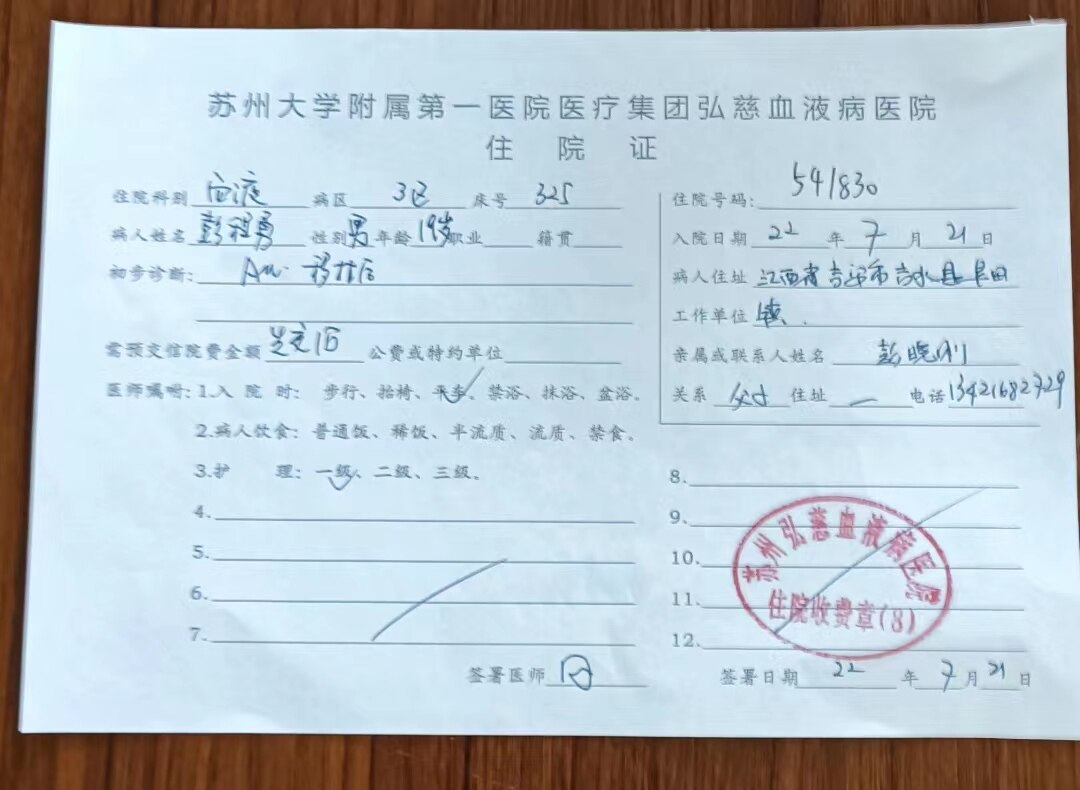 苏州大学附属第一医院医疗集团弘慈血液病医院
住 院 证
住院科别 血液 病区 3区 床号 325
病人姓名 彭程勇 性别 男 年龄 19岁 职业 籍贯
初步诊断: 移植后
需预交住院费金额 公费或特约单位
医师嘱咐: 1.入 院 时: 步行、抬椅、平车、禁浴、抹浴、盆浴。
2.病人饮食: 普通饭、稀饭、半流质、流质、禁食。
3.护 理: 一级、二级、三级。
4.
5.
6.
7.
签署医师
住院号码: 541830
入院日期 22 年 7 月 21 日
病人住址 江西省吉安市吉水县阜田
工作单位 镇.
亲属或联系人姓名 彭晓刚
关系 父子 住址 — 电话 13421682729
8.
9.
10.
11.
12.
苏州弘慈血液病医院
住院收费章(8)
签署日期 22 年 7 月 21 日